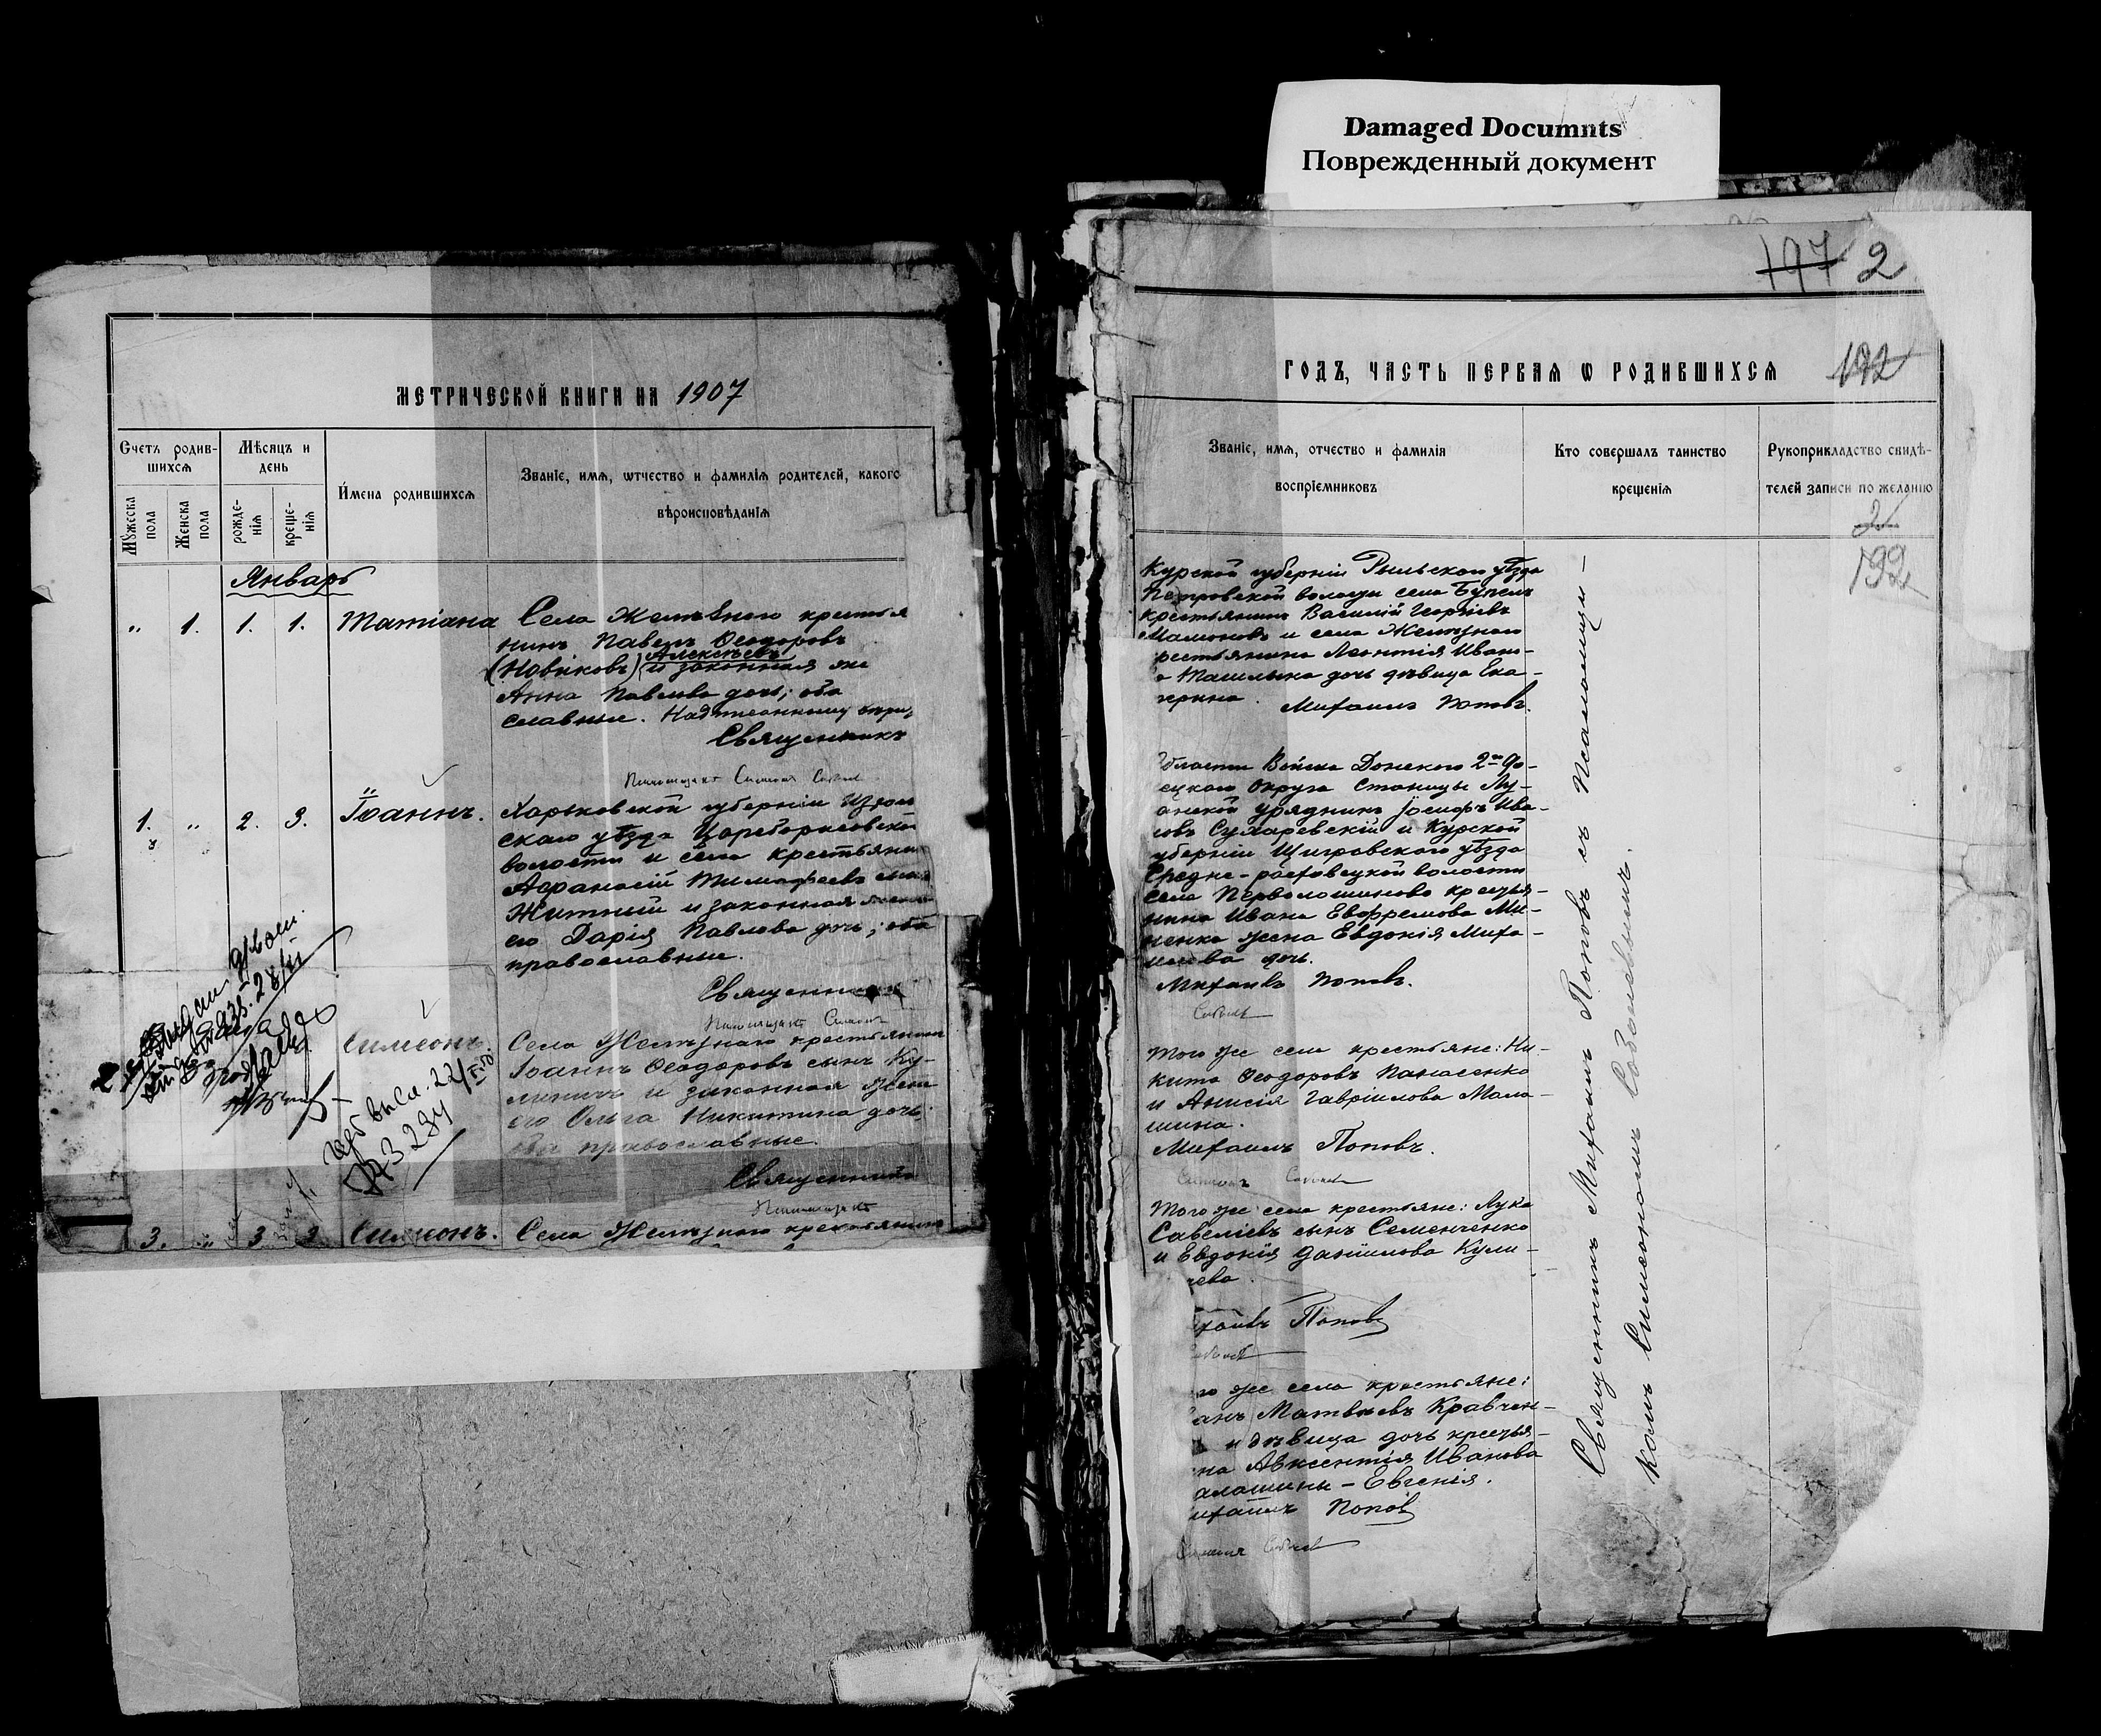 Damaged Documnts
Поврежденный документ
197 2
МЕТРИЧЕСКОЙ КНИГИ НА 1907
Счетъ родив-
шихся
Мѣсяцъ и
день
Мужеска
пола
Женска
пола
рожде-
нія
креще-
нія
Имена родившихся
Званіе, имя, ѿтчество и фамилія родителей, какого
вѣроисповѣданія
Январь
„ 1. 1. 1. Татіана
Села Желѣзного крестья
нинъ Павелъ Ѳеодоровъ
Алексѣевъ
(Новиковъ) и законная же
Анна Павлова дочь; оба
славные. Надписанному
Священникъ
1. „ 2. 3. Іоаннъ.
Харьковской губерніи Изюм
скаго уѣзда Цареборисовской
волости и села крестьянин
Аѳанасій Тимофеевъ сын
Житный и законная жена
его Дарія Павлова дочь; оба
православные.
Священник
Симеонъ
Села Желѣзнаго крестьянин
Іоаннъ Ѳеодоровъ сынъ Ку-
линичъ и законная жена
его Ольга Никитина дочь;
оба православные.
Священникъ
3. „ 3 3 Симеонъ.
Села Желѣзнаго крестьянинъ
ГОДЪ, ЧАСТЬ ПЕРВАЯ Ѡ РОДИВШИХСЯ
192
Званіе, имя, отчество и фамилія
воспріемниковъ
Кто совершалъ таинство
крещенія
Рукоприкладство свидѣ-
телей записи по желанію
2
192
Курской губерніи Рыльскаго уѣзда
Петровской волости села
крестьянинъ Василій Георгіевъ
Мамоновъ и села Желѣзнаго
рестьянина Леонтія Ивано-
дочь дѣвица Ека-
терина. Михаилъ Поповъ.
бласти Войска Донского 2го До-
ецкаго Округа Станицы Лу-
анской урядникъ Іосифъ Ива-
новъ Сухаревскій и Курской
уберніи Щигровскаго уѣзда
Средне-расховецкой волости
села крестья-
нина Ивана Евфремова Ми-
ненко жена Евдокія Миха-
илова дочь.
Михаилъ Поповъ.
Того же села крестьяне: Ни-
кита Ѳеодоровъ Панасенко
и Анисія Гавріилова Мала-
шина.
Михаилъ Поповъ.
Того же села крестьяне: Лука
Савеліевъ сынъ Семенченко
и Евдокія Даніилова Кули-
чева.
хаилъ Поповъ
го же села крестьяне:
анъ Матвѣевъ Кравчен-
и дѣвица дочь крестья-
на Авксентія Иванова
алашины - Евгенія.
ихаилъ Поповъ
Священникъ Михаилъ Поповъ съ Псаломщи-
комъ Симеономъ